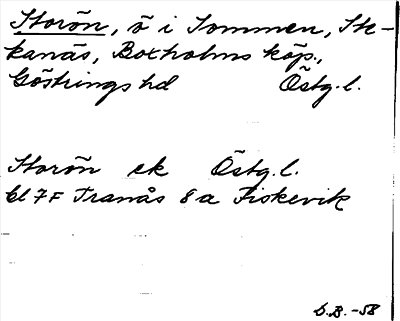 Storön, ö i Sommen, Ste-
kanäs, Boxholms köp.,
Göstrings hd Östg.l.
Storön ek Östg.l.
bl 7F Tranås 8a Fiskevik
D.B.-58